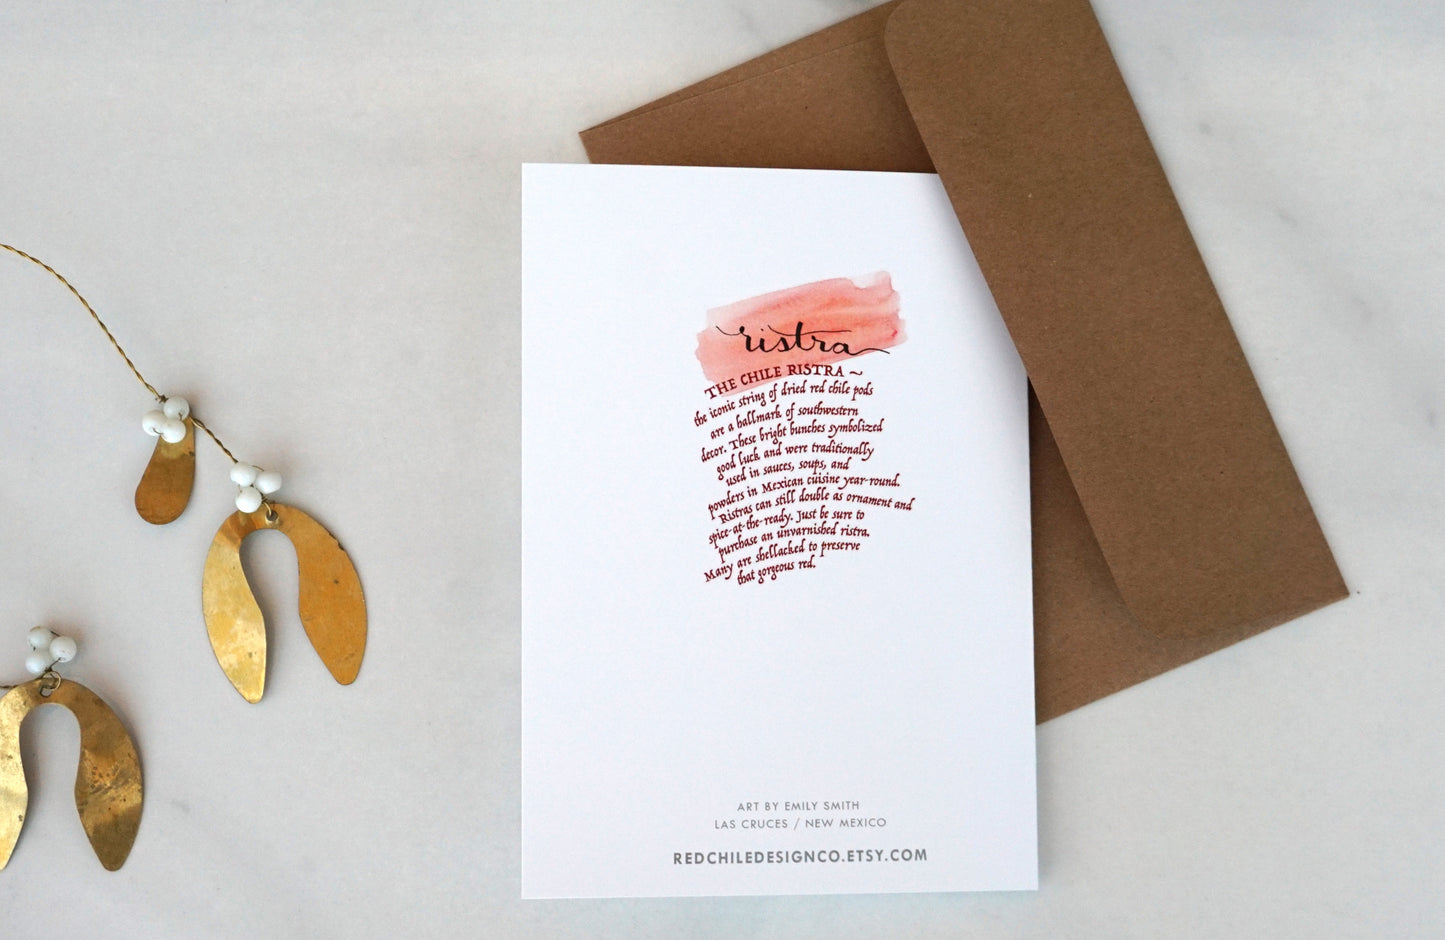 ristra
THE CHILE RISTRA ~
the iconic string of dried red chile pods
are a hallmark of southwestern
decor. These bright bunches symbolized
good luck and were traditionally
used in sauces, soups, and
powders in Mexican cuisine year-round.
Ristras can still double as ornament and
spice-at-the-ready. Just be sure to
purchase an unvarnished ristra.
Many are shellacked to preserve
that gorgeous red.
ART BY EMILY SMITH
LAS CRUCES / NEW MEXICO
REDCHILEDESIGNCO.ETSY.COM